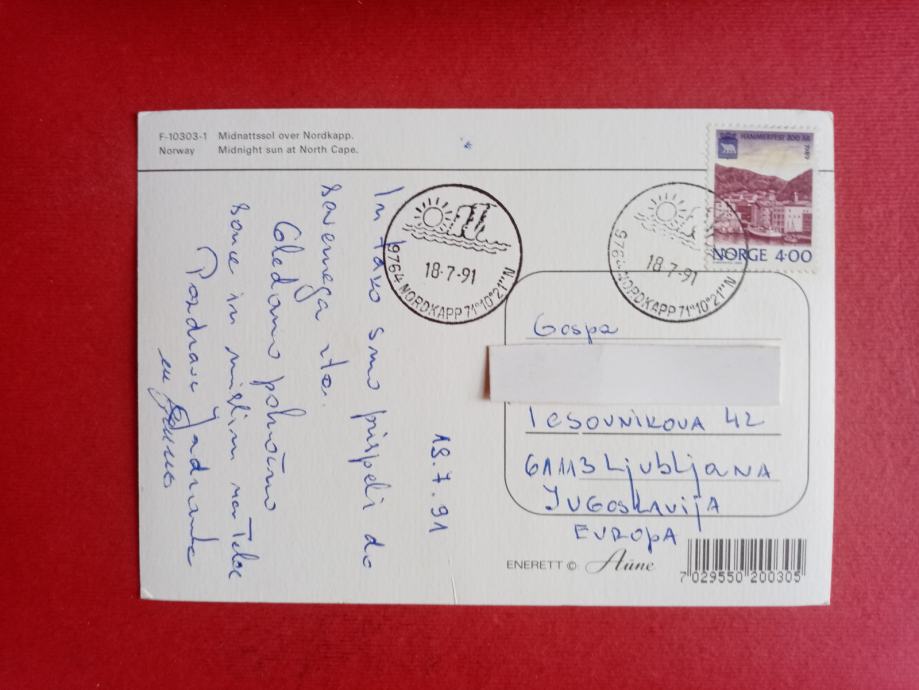 F-10303-1 Midnattssol over Nordkapp.
Norway Midnight sun at North Cape.
HAMMERFEST 200 ÅR
1989
NORGE 4.00
18-7-91
9764 NORDKAPP 71°10'21"N
18-7-91
9764 NORDKAPP 71°10'21"N
18.7.91
In tako smo prispeli do
severnega rta.
Gledamo polnočno
sonce in mislim na Tebe
Pozdrav Jadranka
en
Gospa
TESOVNIKOVA 42
61113 Ljubljana
Jugoslavija
Evropa
ENERETT © Aune
7 029550 200305